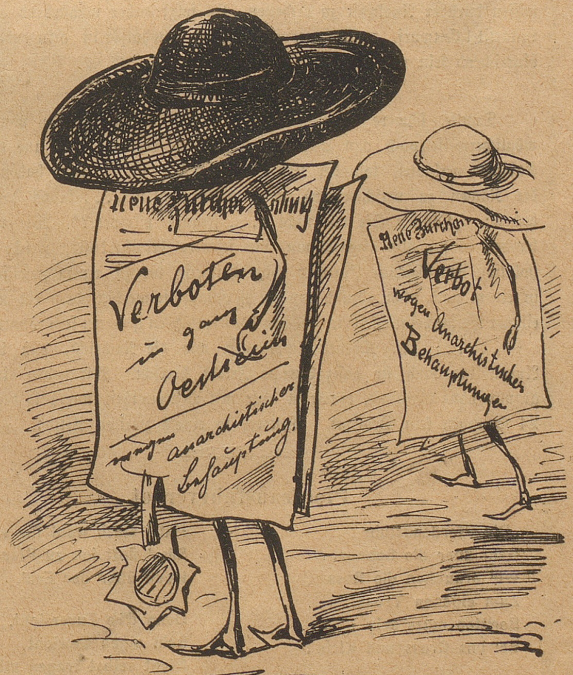 Neue Zürcher Zeitung
Verboten
in ganz
Oestreich
wegen anarchistischer
Behauptung.
Neue Zürcher
Verbot
wegen Anarchistischer
Behauptungen